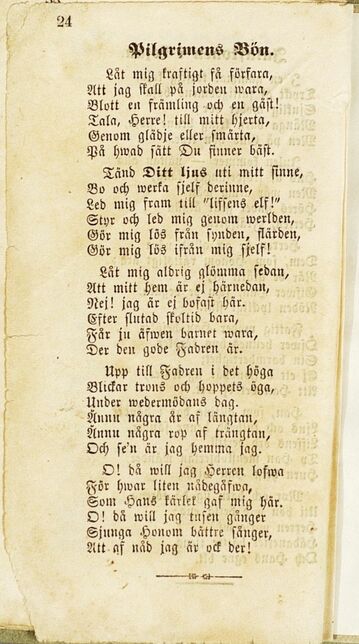 24
Pilgrimens Bön.
Låt mig kraftigt få förfara,
Att jag skall på jorden wara,
Blott en främling och en gäst!
Tala, Herre! till mitt hjerta,
Genom glädje eller smärta,
På hwad sätt Du finner bäst.
Tänd Ditt ljus uti mitt sinne,
Bo och werka sjelf derinne,
Led mig fram till "lifsens elf!"
Styr och led mig genom werlden,
Gör mig lös från synden, flärden,
Gör mig lös ifrån mig sjelf!
Låt mig aldrig glömma sedan,
Att mitt hem är ej härnedan,
Nej! jag är ej bofast här.
Efter slutad skoltid bara,
Får ju äfwen barnet wara,
Der den gode Fadren är.
Upp till Fadren i det höga
Blickar trons och hoppets öga,
Under wedermödans dag.
Ännu några år af längtan,
Ännu några rop af trängtan,
Och se'n är jag hemma jag.
O! då will jag Herren lofwa
För hwar liten nådegåfwa,
Som Hans kärlek gaf mig här.
O! då will jag tusen gånger
Sjunga Honom bättre sånger,
Att af nåd jag är ock der!